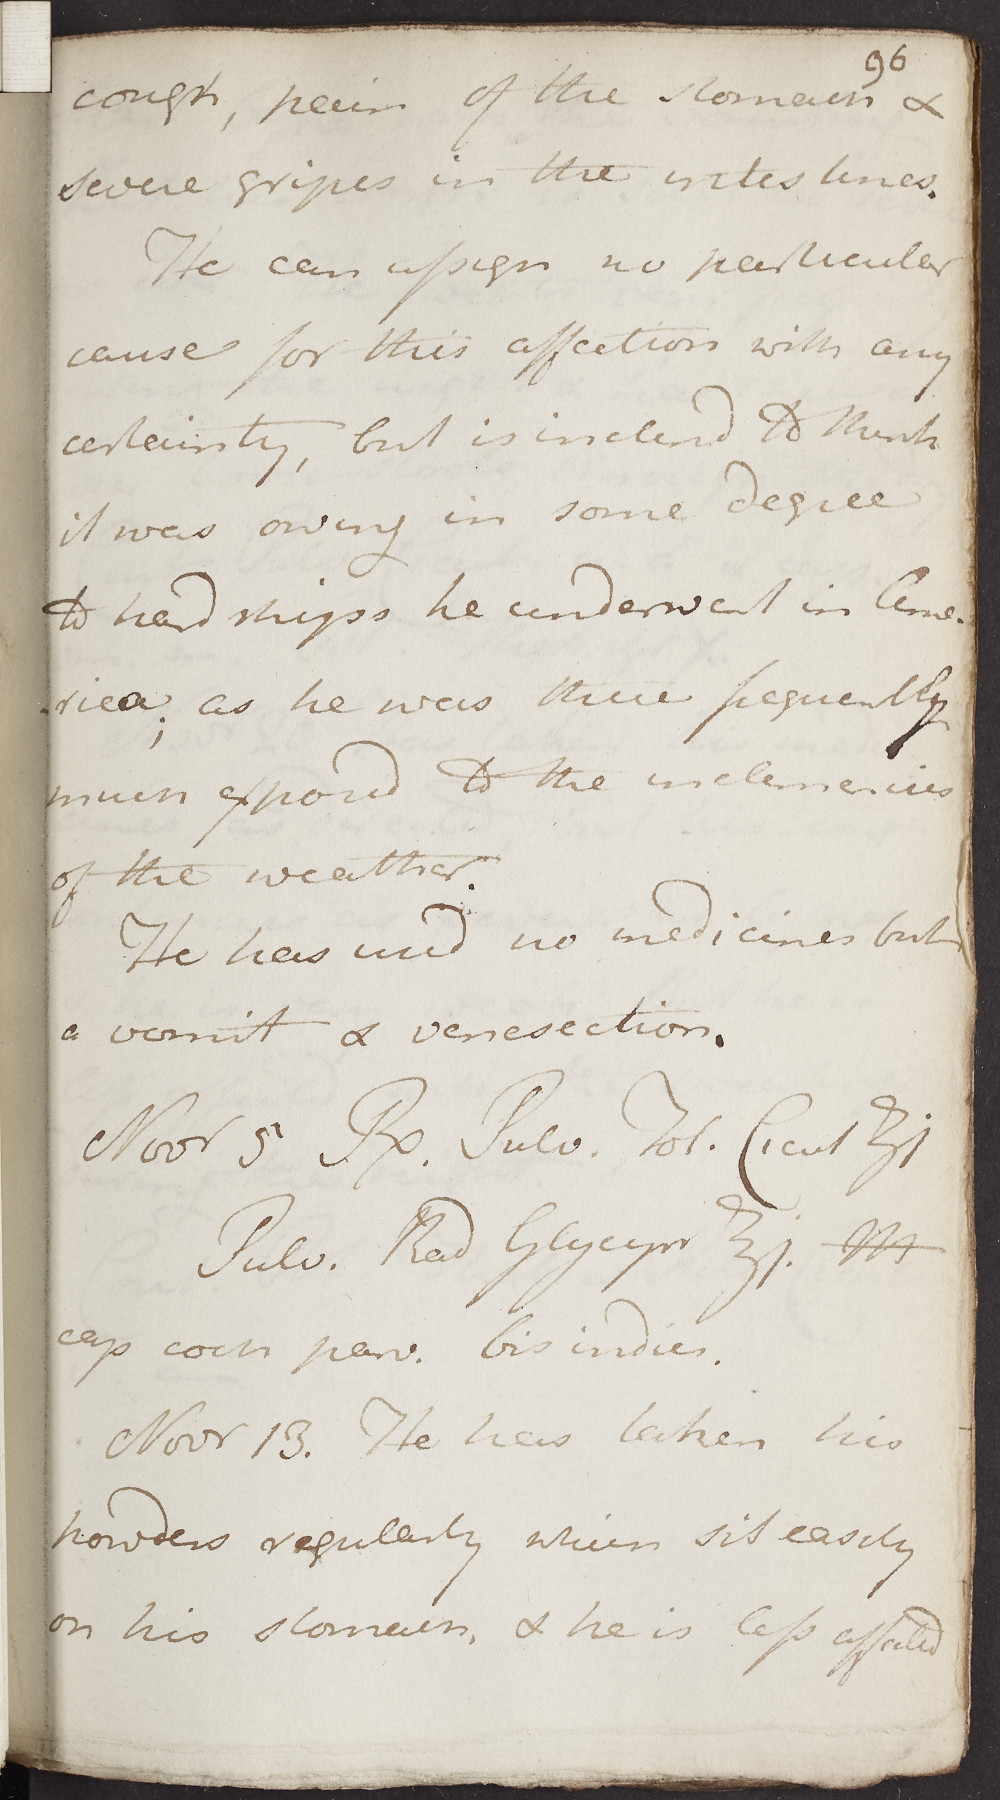 96
cough, pain of the stomach &
severe gripes in the intestines.
He can assign no particular
cause for this affection with any
certainty, but is inclend to think
it was owing in some degree
to hardships he underwent in Ame-
-rica; as he was there frequently
much exposed to the inclemencies
of the weather.
He has used no medicines but
a vomit & venesection.
Novr 5 Rx. Pulv. Fol. Cicut ʒj
Pulv. Rad Glycyrr ʒj. M
cap coch parv. bis indies.
Novr 13. He has taken his
powders regularly which sit easily
on his stomach, & he is less affected